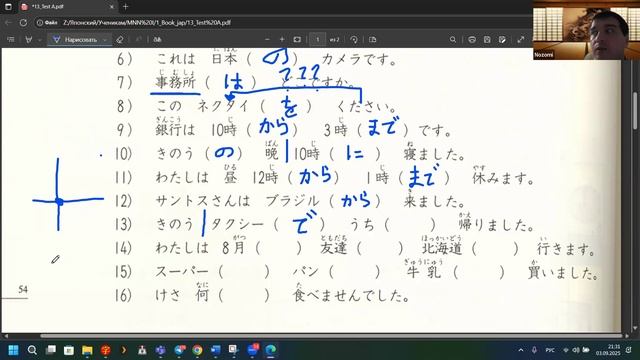 *13_Test A.pdf
Z:/Японский/Ученикам/MNN%20I/1_Book_jap/13_Test%20A.pdf
Нарисовать
1
из 2
Nozomi
6) これは 日本 (の) カメラです。
7) 事務所 (は) どこですか。
???
8) この ネクタイ (を) ください。
9) 銀行は 10時 (から) 3時 (まで) です。
10) きのう (の) 晩 | 10時 (に) 寝ました。
11) わたしは 昼 12時 (から) 1時 (まで) 休みます。
12) サントスさんは ブラジル (から) 来ました。
13) きのう | タクシー (で) うち ( ) 帰りました。
14) わたしは 8月 ( ) 友達 ( ) 北海道 ( ) 行きます。
15) スーパー ( ) パン ( ) 牛乳 ( ) 買いました。
16) けさ 何 ( ) 食べませんでした。
54
РУС
21:31
03.09.2025